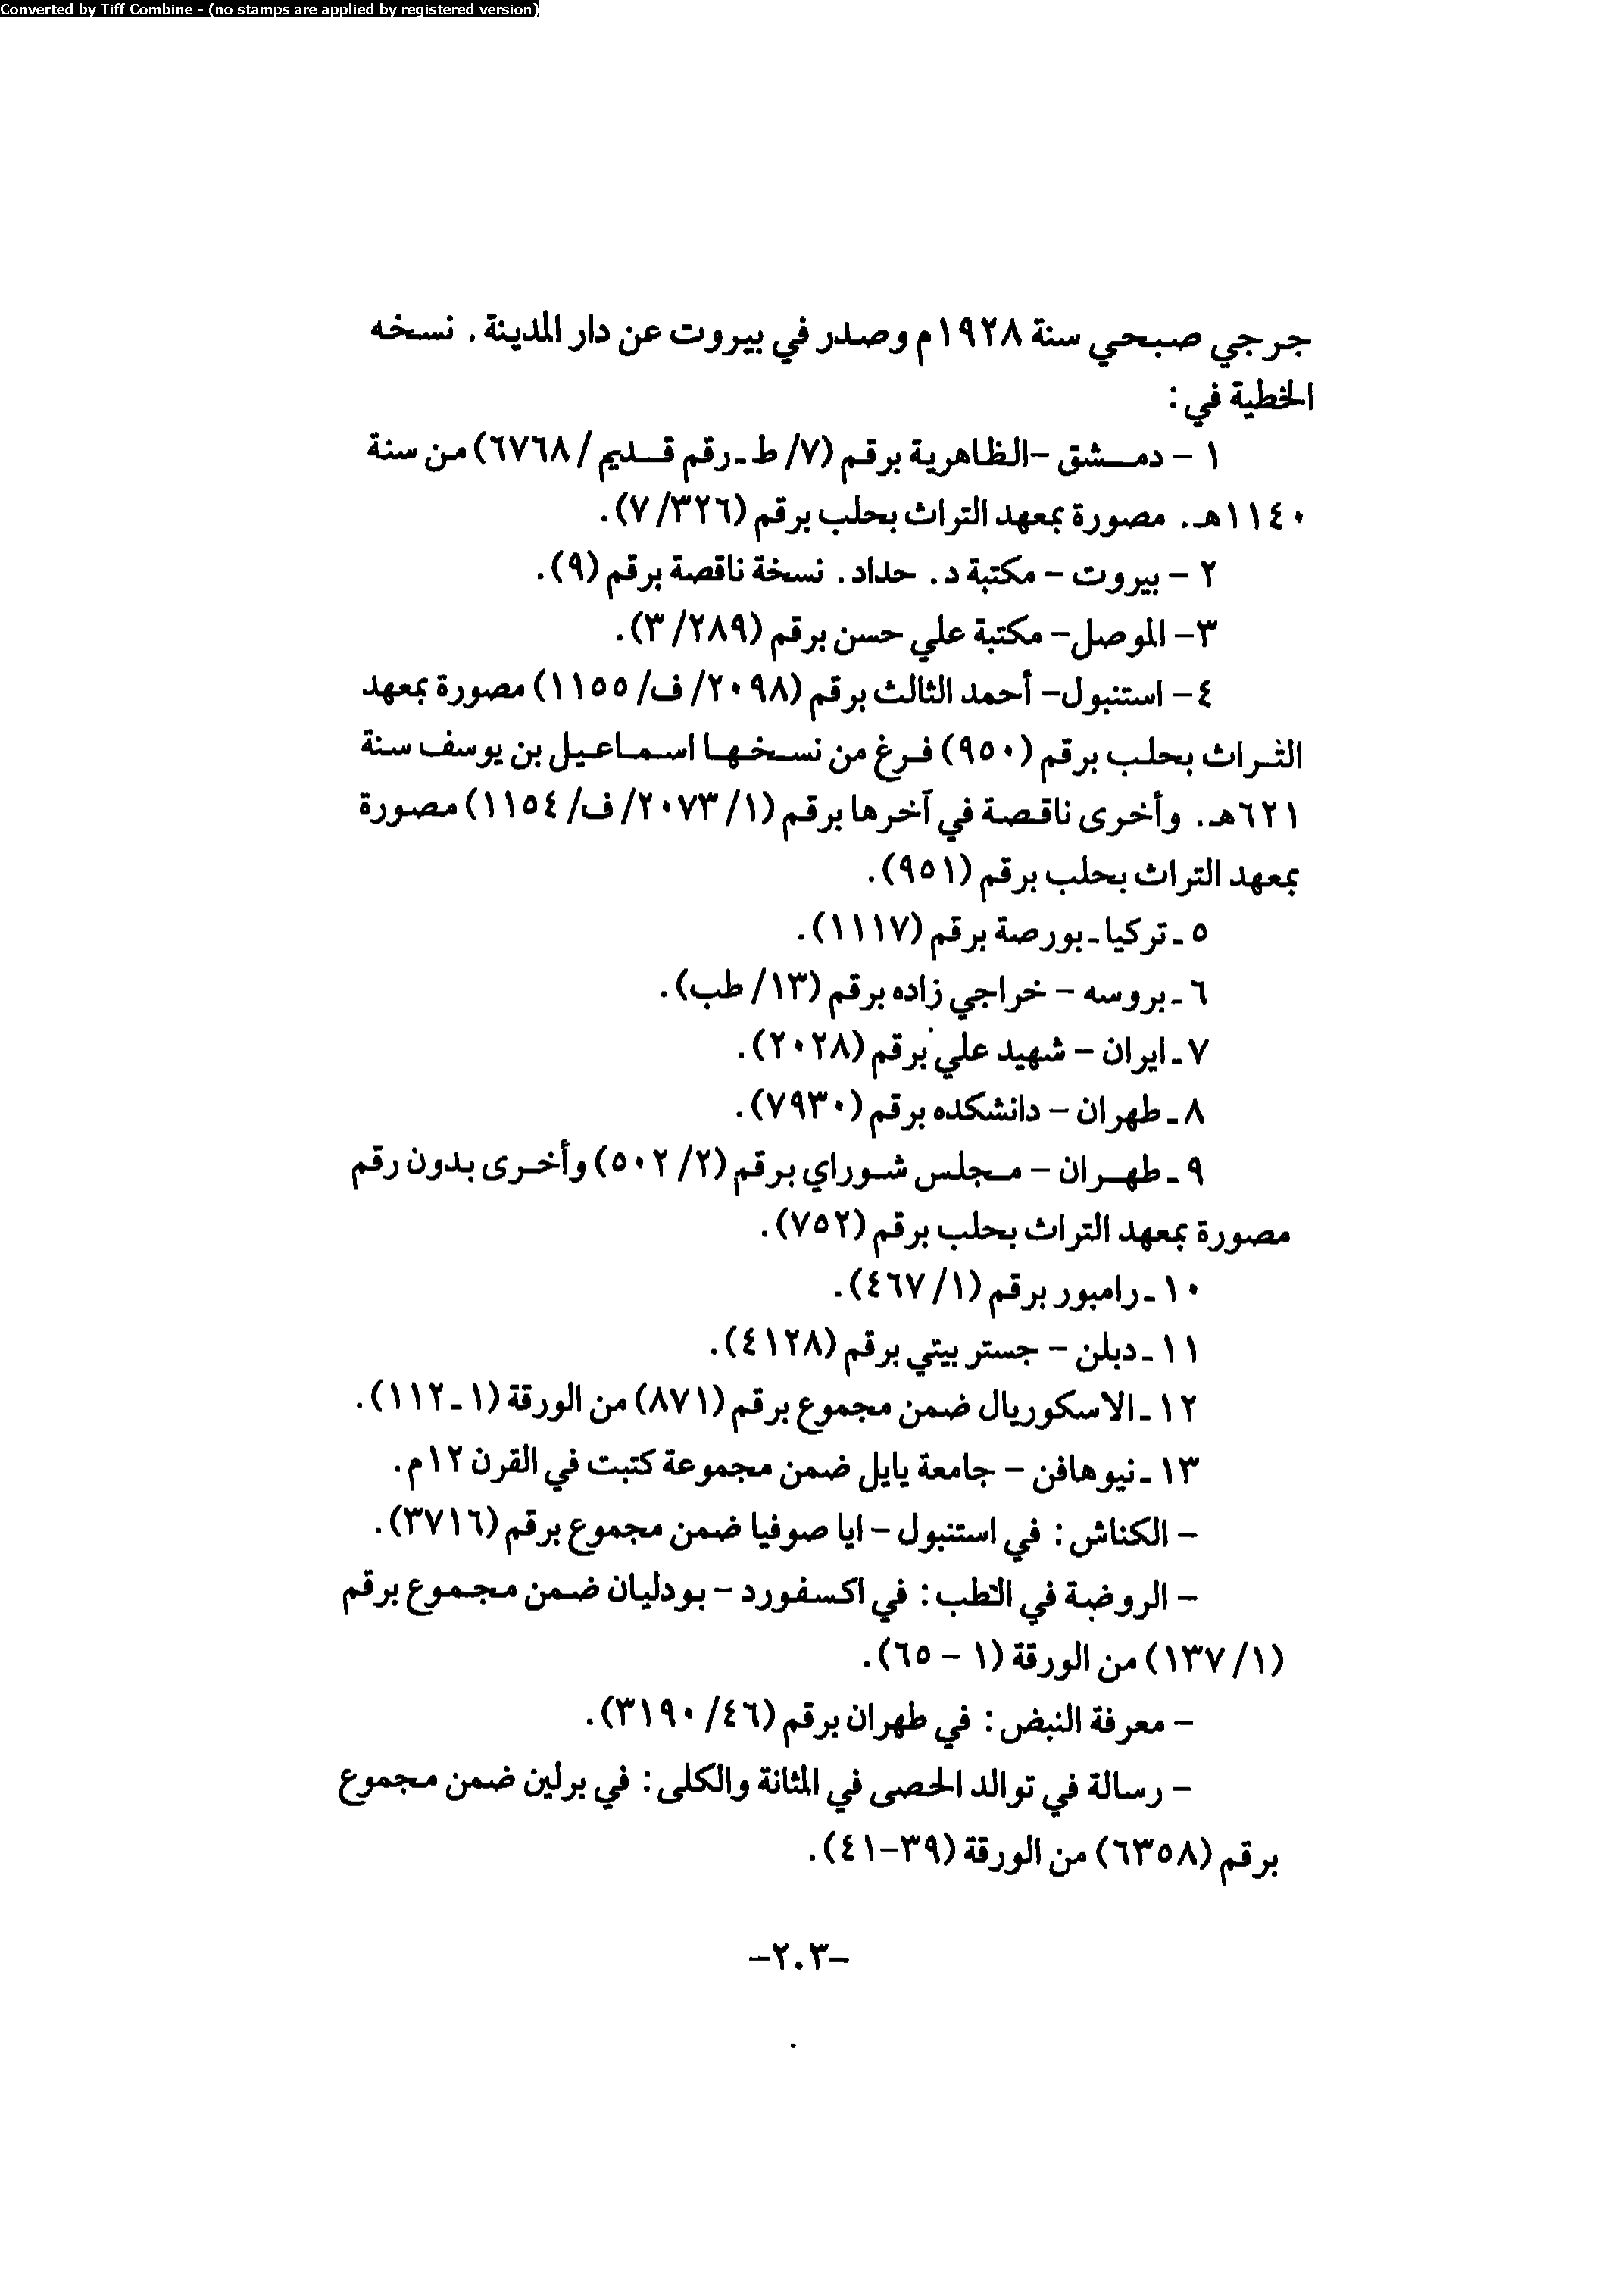 Converted by Tiff Combine - (no stamps are applied by registered version)
جرجي صبحي سنة ١٩٢٨م وصدر في بيروت عن دار المدينة. نسخه
الخطية في:
١ - دمشق -الظاهرية برقم (٧/ ط-رقم قديم / ٦٧٦٨) من سنة
١١٤٠هـ. مصورة بمعهد التراث بحلب برقم (٣٢٦/ ٧).
٢ - بيروت - مكتبة د. حداد. نسخة ناقصة برقم (٩).
٣- الموصل- مكتبة علي حسن برقم (٢٨٩/ ٣).
٤- استنبول- أحمد الثالث برقم (٢٠٩٨/ ف/ ١١٥٥) مصورة بمعهد
التراث بحلب برقم (٩٥٠) فرغ من نسخها اسماعيل بن يوسف سنة
٦٢١هـ. وأخرى ناقصة في آخرها برقم (١/ ٢٠٧٣/ ف/ ١١٥٤) مصورة
بمعهد التراث بحلب برقم (٩٥١).
٥ - تركيا - بورصة برقم (١١١٧).
٦ - بروسه - خراجي زاده برقم (١٣/ طب).
٧ - ايران - شهيد علي برقم (٢٠٢٨).
٨ - طهران - دانشكده برقم (٧٩٣٠).
٩ - طهران - مجلس شوراي برقم (٢/ ٥٠٢) وأخرى بدون رقم
مصورة بمعهد التراث بحلب برقم (٧٥٢).
١٠ - رامبور برقم (١/ ٤٦٧).
١١ - دبلن - جستر بيتي برقم (٤١٢٨).
١٢ - الاسكوريال ضمن مجموع برقم (٨٧١) من الورقة (١ - ١١٢).
١٣ - نيوهافن - جامعة يايل ضمن مجموعة كتبت في القرن ١٢م.
- الكناش: في استنبول - ايا صوفيا ضمن مجموع برقم (٣٧١٦).
- الروضة في الطب: في اكسفورد - بودليان ضمن مجموع برقم
(١/ ١٣٧) من الورقة (١ - ٦٥).
- معرفة النبض: في طهران برقم (٤٦/ ٣١٩٠).
- رسالة في توالد الحصى في المثانة والكلى: في برلين ضمن مجموع
برقم (٦٣٥٨) من الورقة (٣٩-٤١).
-٢٠٣-